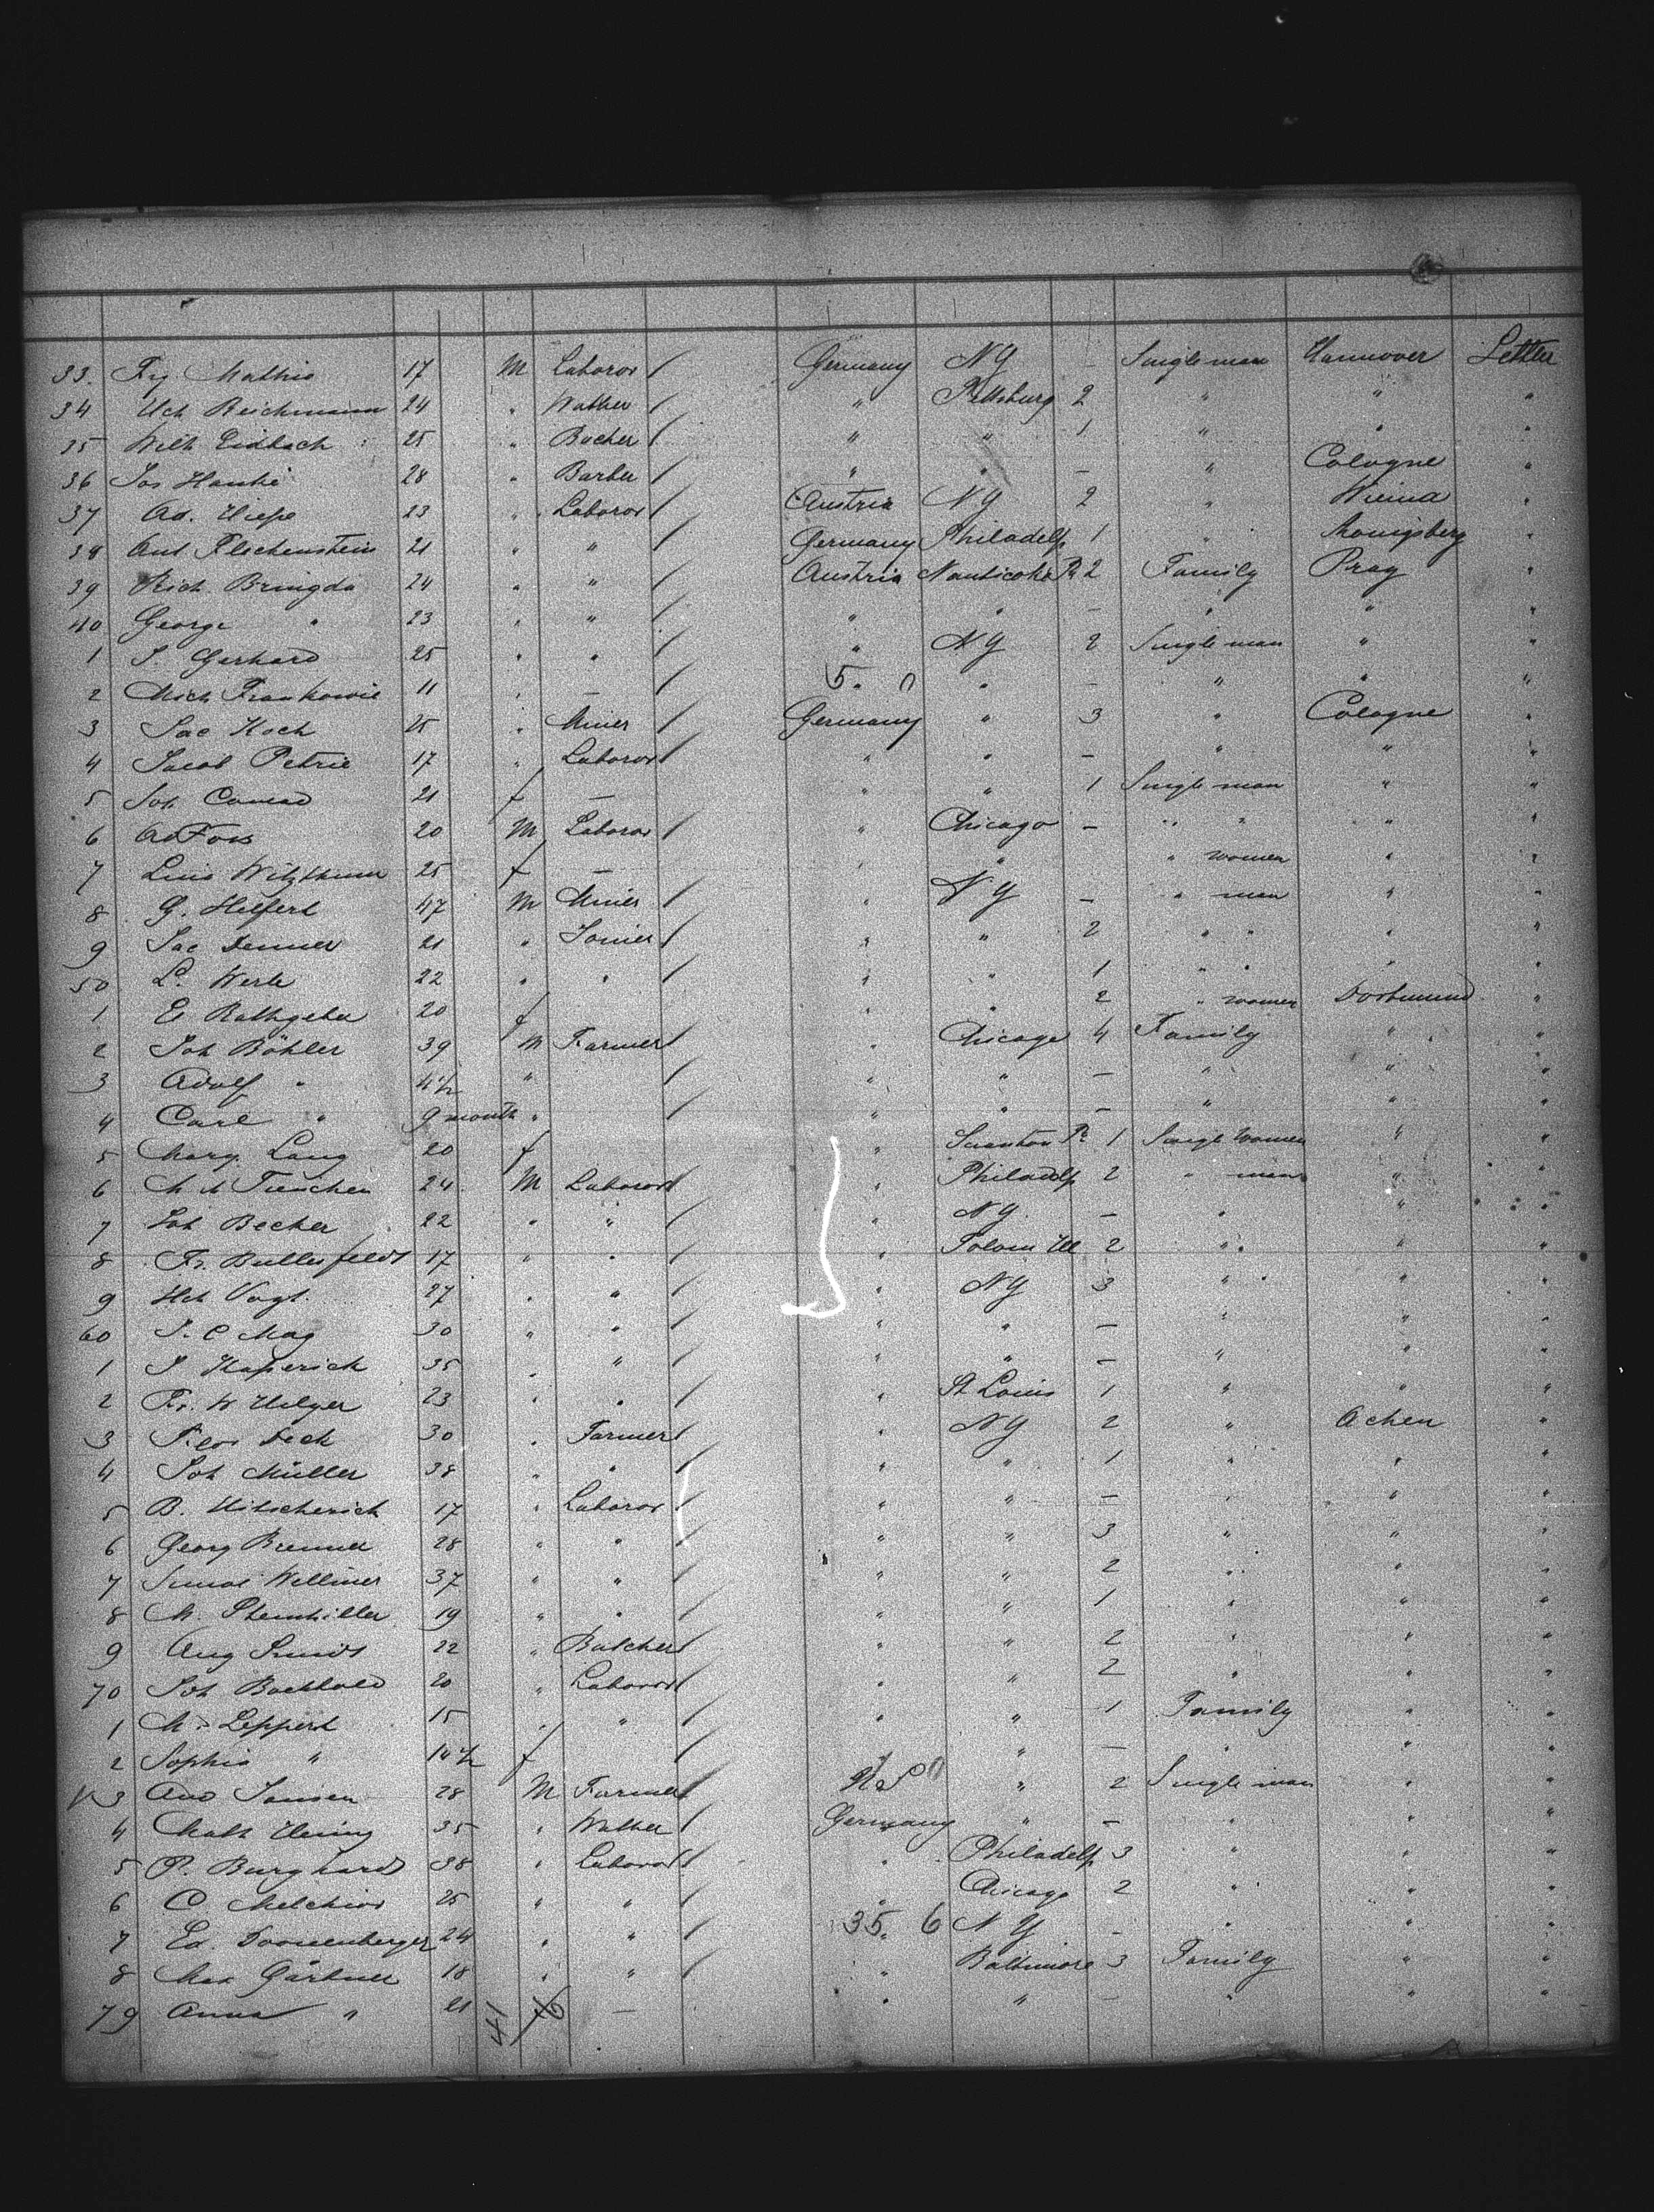 33. Frz Mathis 17 M Laboror / Germany NY – Single man Hannover Letter
34 Hch Reichmann 24 " Walker / " Pittsburg 2 " " "
35 Wilh Eidbach 25 " Bacher / " " 1 " " "
36 Jos Hanke 28 " Barber / " " – " Cologne "
37 Ad. Hiepe 23 " Laboror / Austria NY 2 " Wiena "
38 Ant Flechenstein 21 " " / Germany Philadelp 1 " Konigsberg "
39 Rich. Bringda 24 " " / Austria Nanticoke Pa 2 Family Prag "
40 George " 23 " " / " " – " " "
1 J. Gerhard 25 " " / " NY 2 Single man " "
2 Mich Frankowic 11 " – / 5. 0 " – " " "
3 Jac Koch 25 " Miner / Germany " 3 " Cologne "
4 Jacob Petrie 17 " Laboror / " " – " " "
5 Joh Conrad 21 f – " " 1 Single man " "
6 Ad Foss 20 M Laboror / " Chicago – " " " "
7 Luis Witzthum 25 f – " " " women " "
8 G. Helfert 47 M Miner / " NY – " man " "
9 Jac Denner 21 " Joiner / " " 2 " " " "
50 L. Werle 22 " " / " " 1 " " " "
1 E Rathgeber 20 f " " 2 " women Dortmund "
2 Joh Böhler 39 M Farmer / " Chicago 4 Family " "
3 Adolf " 4½ " / " " – " " "
4 Carl " 9 month " / " " – " " "
5 Marg. Lang 20 f " Scranton Pa 1 Single Women " "
6 Tieschen 24 M Laboror / " Philadelp 2 " man " "
7 Joh Becker 22 " " / " NY. – " " "
8 Fr. Bullesfeldt 17 " " / " Ill 2 " " "
9 Hch Vogt. 27 " " / " NY 3 " " "
60 J. C Mag 30 " " / " " – " " "
1 J Kaperich 35 " " / " " – " " "
2 Fr. W Hilger 23 " " / " St Louis 1 " " "
3 Dech 30 " Farmer / " NY 2 " Achen "
4 Joh Müller 38 " " / " " 1 " " "
5 B. Hitscherich 17 " Laboror / " " – " " "
6 Georg Brenner 28 " " / " " 3 " " "
7 Wellmer 37 " " / " " 2 " " "
8 M. Sternhiller 19 " " / " " 1 " " "
9 Aug Smidt 22 " Butcher / " " 2 " " "
70 Joh Bochhold 20 " Laboror / " " 2 " " "
1 M. Leppert 15 " " / " " 1 Family " "
2 Sophie " 10½ f / " – " " "
3 And Jansen 28 M Farmer / " 2 Single man " "
4 Math Hering 35 " Walker / Germany " – " " "
5 P. Burghard 38 " Laboror / " Philadelp 3 " " "
6 C. Melchior 25 " " / " Chicago 2 " " "
7 Ed. Donnenberger 24 " " / 35. 6 NY – " " "
8 Max Gärtner 18 " " / " Baltimore 3 Family " "
79 Anna " 21 f – " " – " " "
41 6